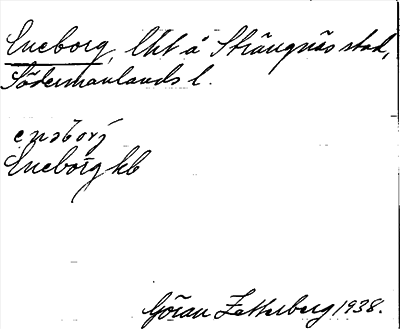 Eneborg, lht å Strängnäs stad,
Södermanlands l.
enəborj
Eneborg kb
Göran Zetterberg 1938.